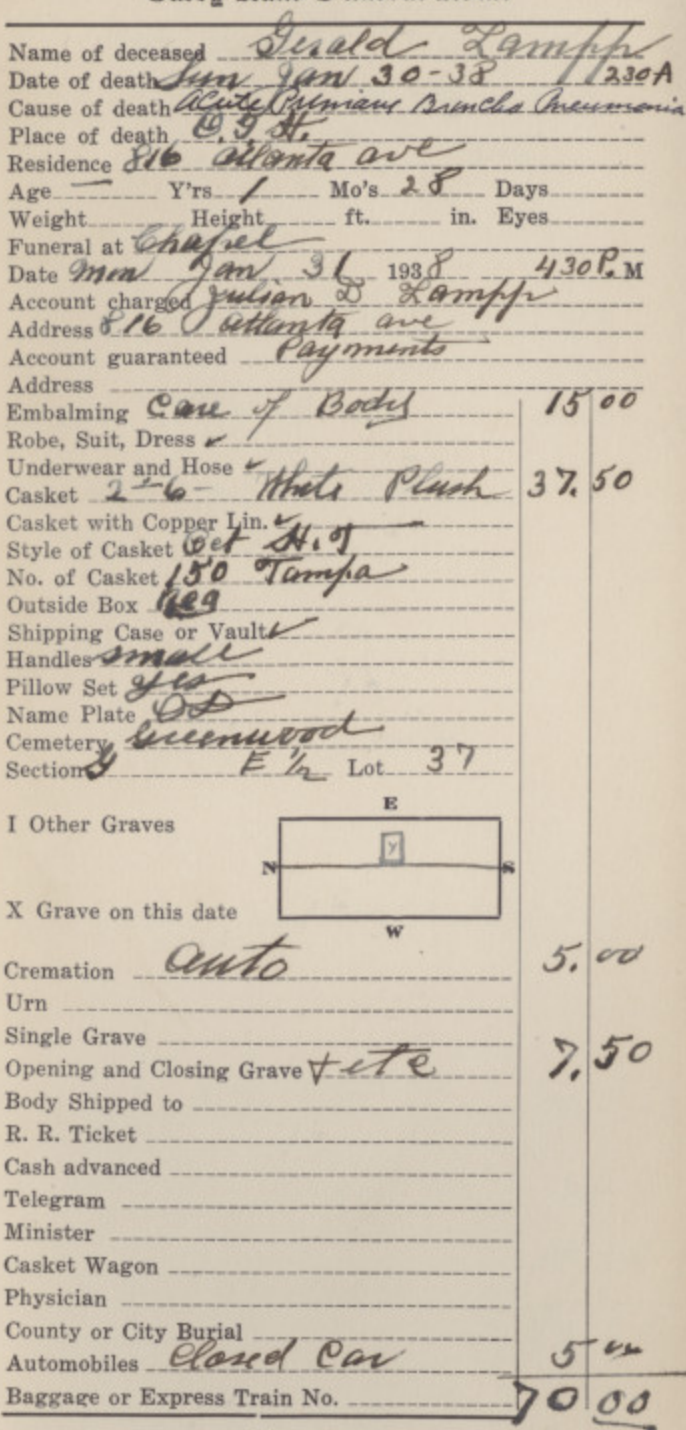 Name of deceased Gerald Lampp
Date of death Sun Jan 30-38 230A
Cause of death Acute Primary Broncho Pneumonia
Place of death
Residence 816 Atlanta ave
Age — Y'rs 1 Mo's 28 Days
Weight Height ft. in. Eyes
Funeral at Chapel
Date Mon Jan 31 1938 430 P. M
Account charged Julian D Lampp
Address 816 Atlanta ave
Account guaranteed Payments
Address
Embalming Care of Body 15 00
Robe, Suit, Dress ✓
Underwear and Hose ✓
Casket 2-6- White Plush 37.50
Casket with Copper Lin. ✓
Style of Casket Oct
No. of Casket 150 Tampa
Outside Box
Shipping Case or Vault ✓
Handles small
Pillow Set yes
Name Plate
Cemetery Greenwood
Section G E 1/2 Lot 37
E
I Other Graves
N S
X Grave on this date
W
Cremation auto 5.00
Urn
Single Grave
Opening and Closing Grave + etc 7.50
Body Shipped to
R. R. Ticket
Cash advanced
Telegram
Minister
Casket Wagon
Physician
County or City Burial
Automobiles Closed Car 5 00
Baggage or Express Train No. 70 00